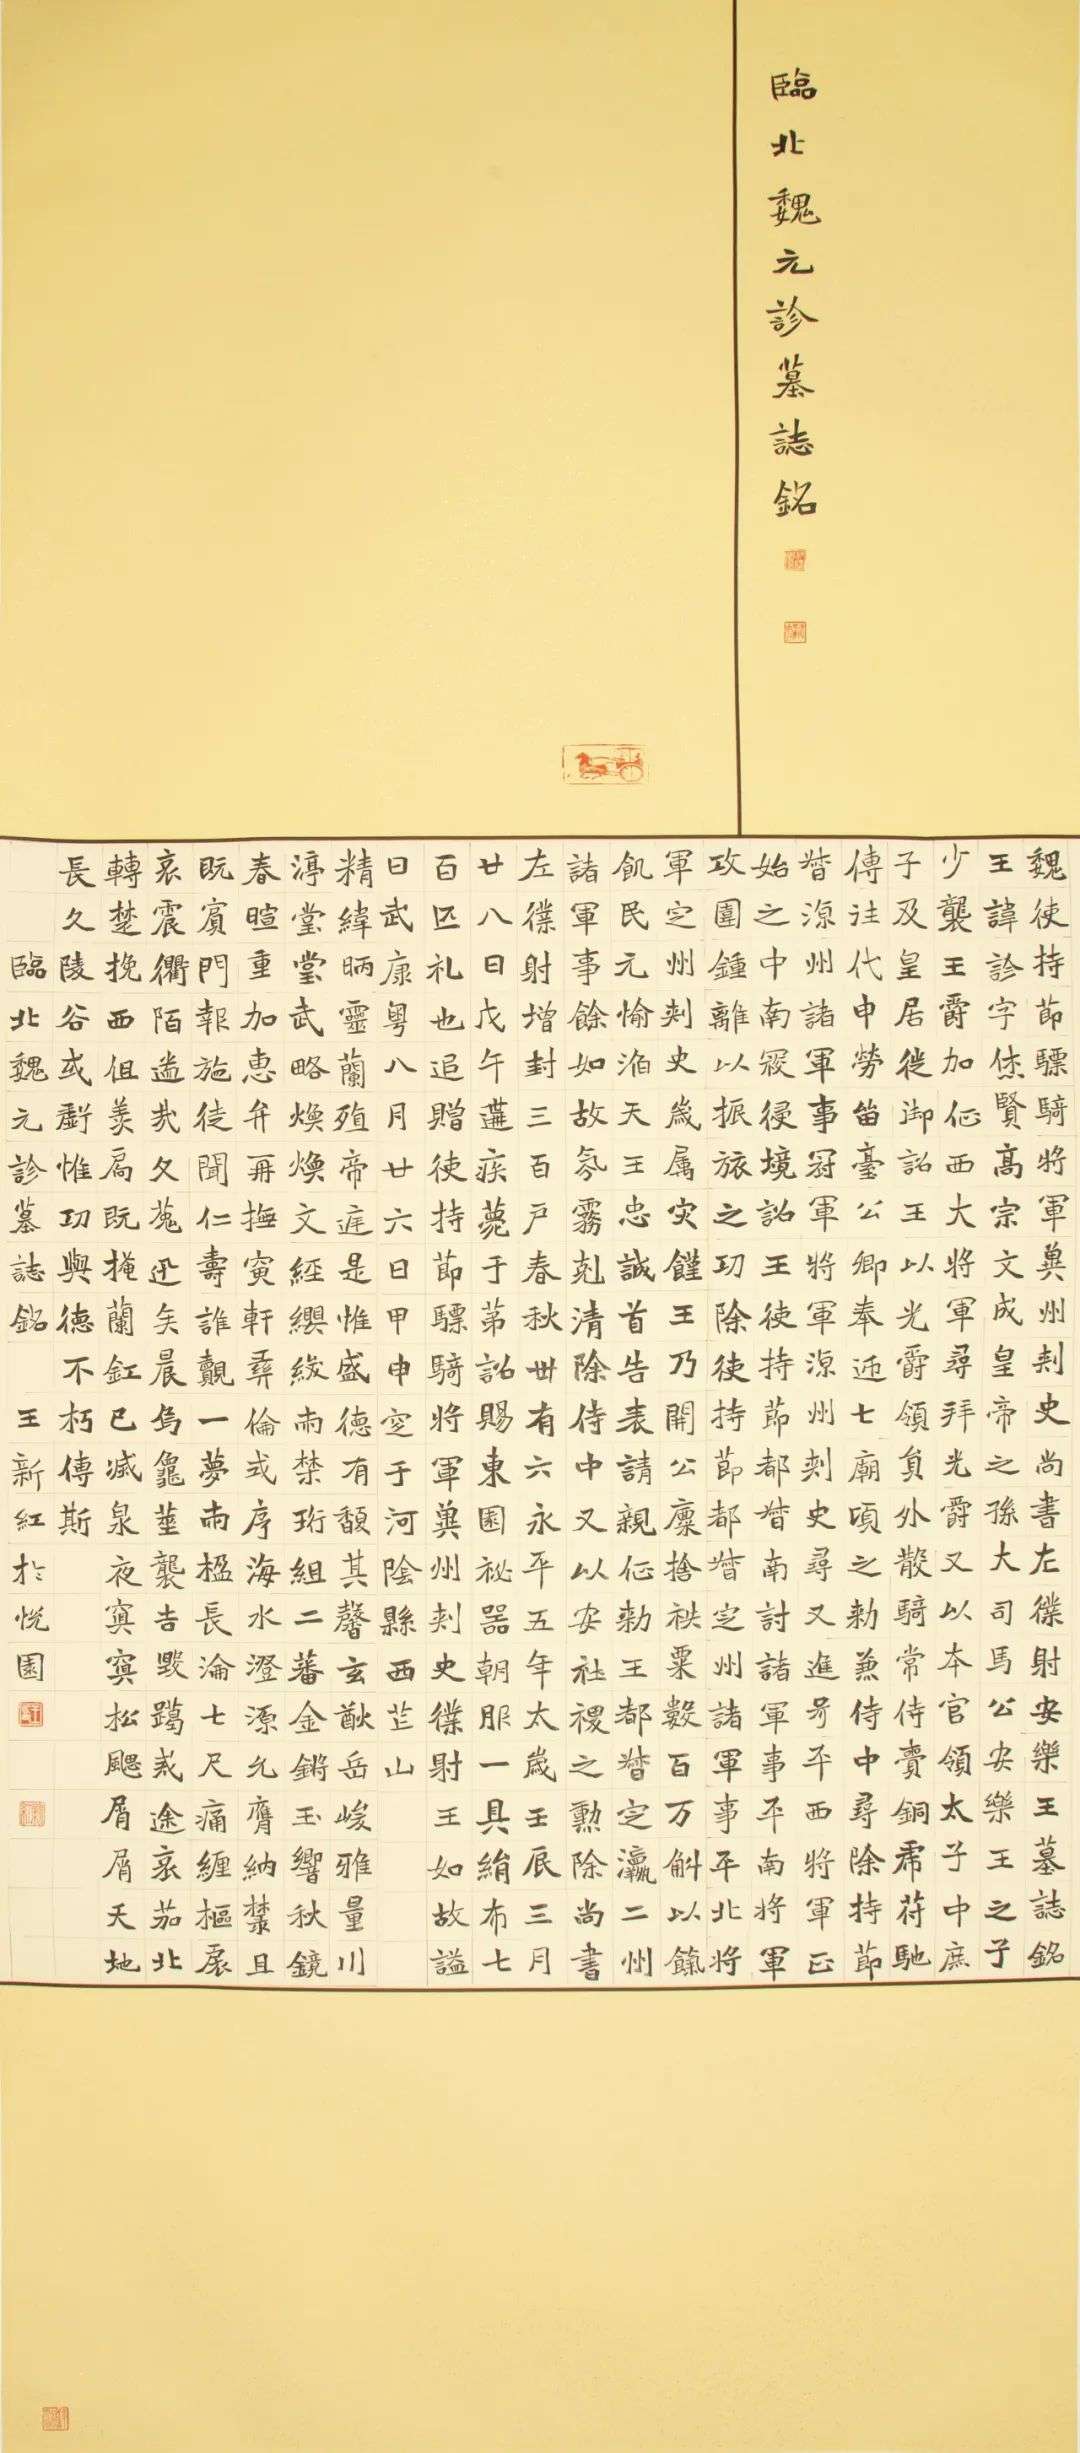 臨北魏元診墓誌銘
魏使持節驃騎將軍冀州刺史尚書左僕射安樂王墓誌銘
王諱診字休賢高宗文成皇帝之孫大司馬公安樂王之子
少襲王爵加征西大將軍尋拜光爵又以本官領太子中庶
子及皇居徙御詔王以光爵領員外散騎常侍賫銅虎苻馳
傳往代申勞留臺公卿奉迎七廟頃之勅兼侍中尋除持節
督涼州諸軍事冠軍將軍涼州刺史尋又進号平西將軍正
始之中南寇侵境詔王使持節都督南討諸軍事平南將軍
攻圍鍾離以振旅之功除使持節都督定州諸軍事平北將
軍定州刺史歲属灾饉王乃開公廩捨秩粟數百万斛以餼
飢民元愉滔天王忠誠首告表請親征勅王都督定瀛二州
諸軍事餘如故氛霧剋清除侍中又以安社稷之勳除尚書
左僕射增封三百戶春秋卅有六永平五年太歲壬辰三月
廿八日戊午遘疾薨于第詔賜東園祕器朝服一具絹布七
百匹礼也追贈使持節驃騎將軍冀州刺史僕射王如故謚
曰武康粤八月廿六日甲申窆于河陰縣西芒山
精緯昞靈蘭殖帝庭是惟盛德有馥其馨玄猷岳峻雅量川
渟堂堂武略煥煥文經纓紱兩禁珩組二蕃金鏘玉響秋鏡
春暄重加惠弁再撫寅軒彝倫式序海水澄源允膺納麓且
既賓門報施徒聞仁壽誰覿一夢兩楹長淪七尺痛纏樞扆
哀震衢陌遄哉夕菟迅矣晨烏龜筮襲吉毀躅戒途哀茄北
轉楚挽西徂羨扃既掩蘭釭已滅泉夜寞寞松颸屑屑天地
長久陵谷或虧惟功與德不朽傳斯
臨北魏元診墓誌銘 王新紅於悅園